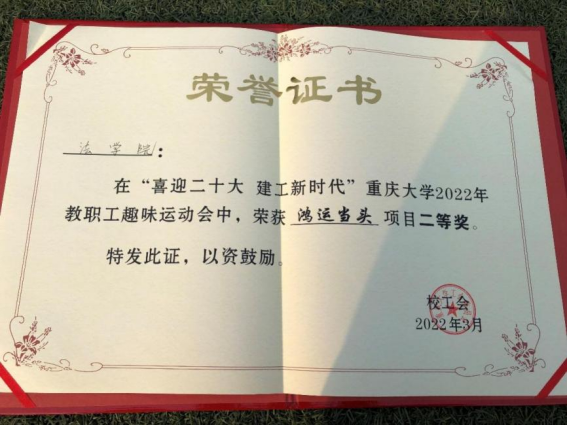 荣誉证书
法学院：
在“喜迎二十大 建工新时代”重庆大学2022年
教职工趣味运动会中，荣获 鸿运当头 项目二等奖。
特发此证，以资鼓励。
校工会
2022年3月